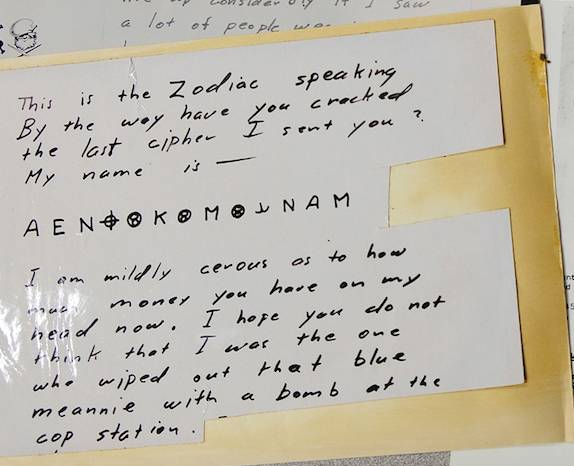 a lot of people wo
This is the Zodiac speaking
By the way have you cracked
the last cipher I sent you?
My name is —
A E N ⌖ ⊗ K ⊗ M ⊗ ⅄ N A M
I am mildly cerous as to how
much money you have on my
head now. I hope you do not
think that I was the one
who wiped out that blue
meannie with a bomb at the
cop station.